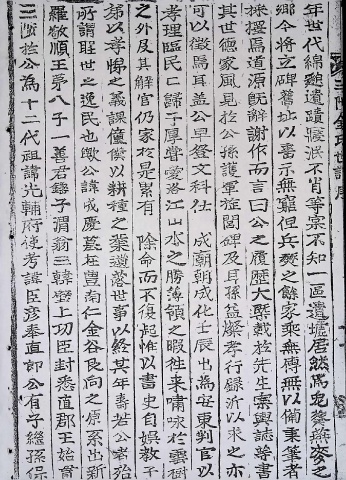 年世代綿邈遺蹟寢泯不肖等寀不知一區遺墟居然馬鬣鞠荒之
鄕今將立碑舊址以啚示無窮但兵燹之餘家乘無傳無以備秉筆者
採擇焉道源旣辭謝作而言曰公之履歷大槩載於先生案輿誌諸書
其世德家風見於公孫護軍旌閭碑及耳孫益燦孝行錄沂以求之亦
可以徵焉耳盖公早登文科仕 成廟朝成化壬辰出爲安東判官以
孝理臨民民歸于厚嘗愛洛江山水之勝簿領之暇往來嘯咏於雲樹
之外及其解官仍家於是累有 除命而不復起惟以書史自娛敎子
弟以孝悌之義課僮僕以耕種之業遺落世事以終其年壽若公者殆
所謂聖世之逸民也歟公諱成慶墓在豊南仁金谷艮向之原系出新
羅敬順王第八子一善君錘子渭翁三韓壁上功臣封悉直郡王始貫
三陟於公爲十二代祖諱光輔府使考諱臣彦奉直郞公有子繼孫保